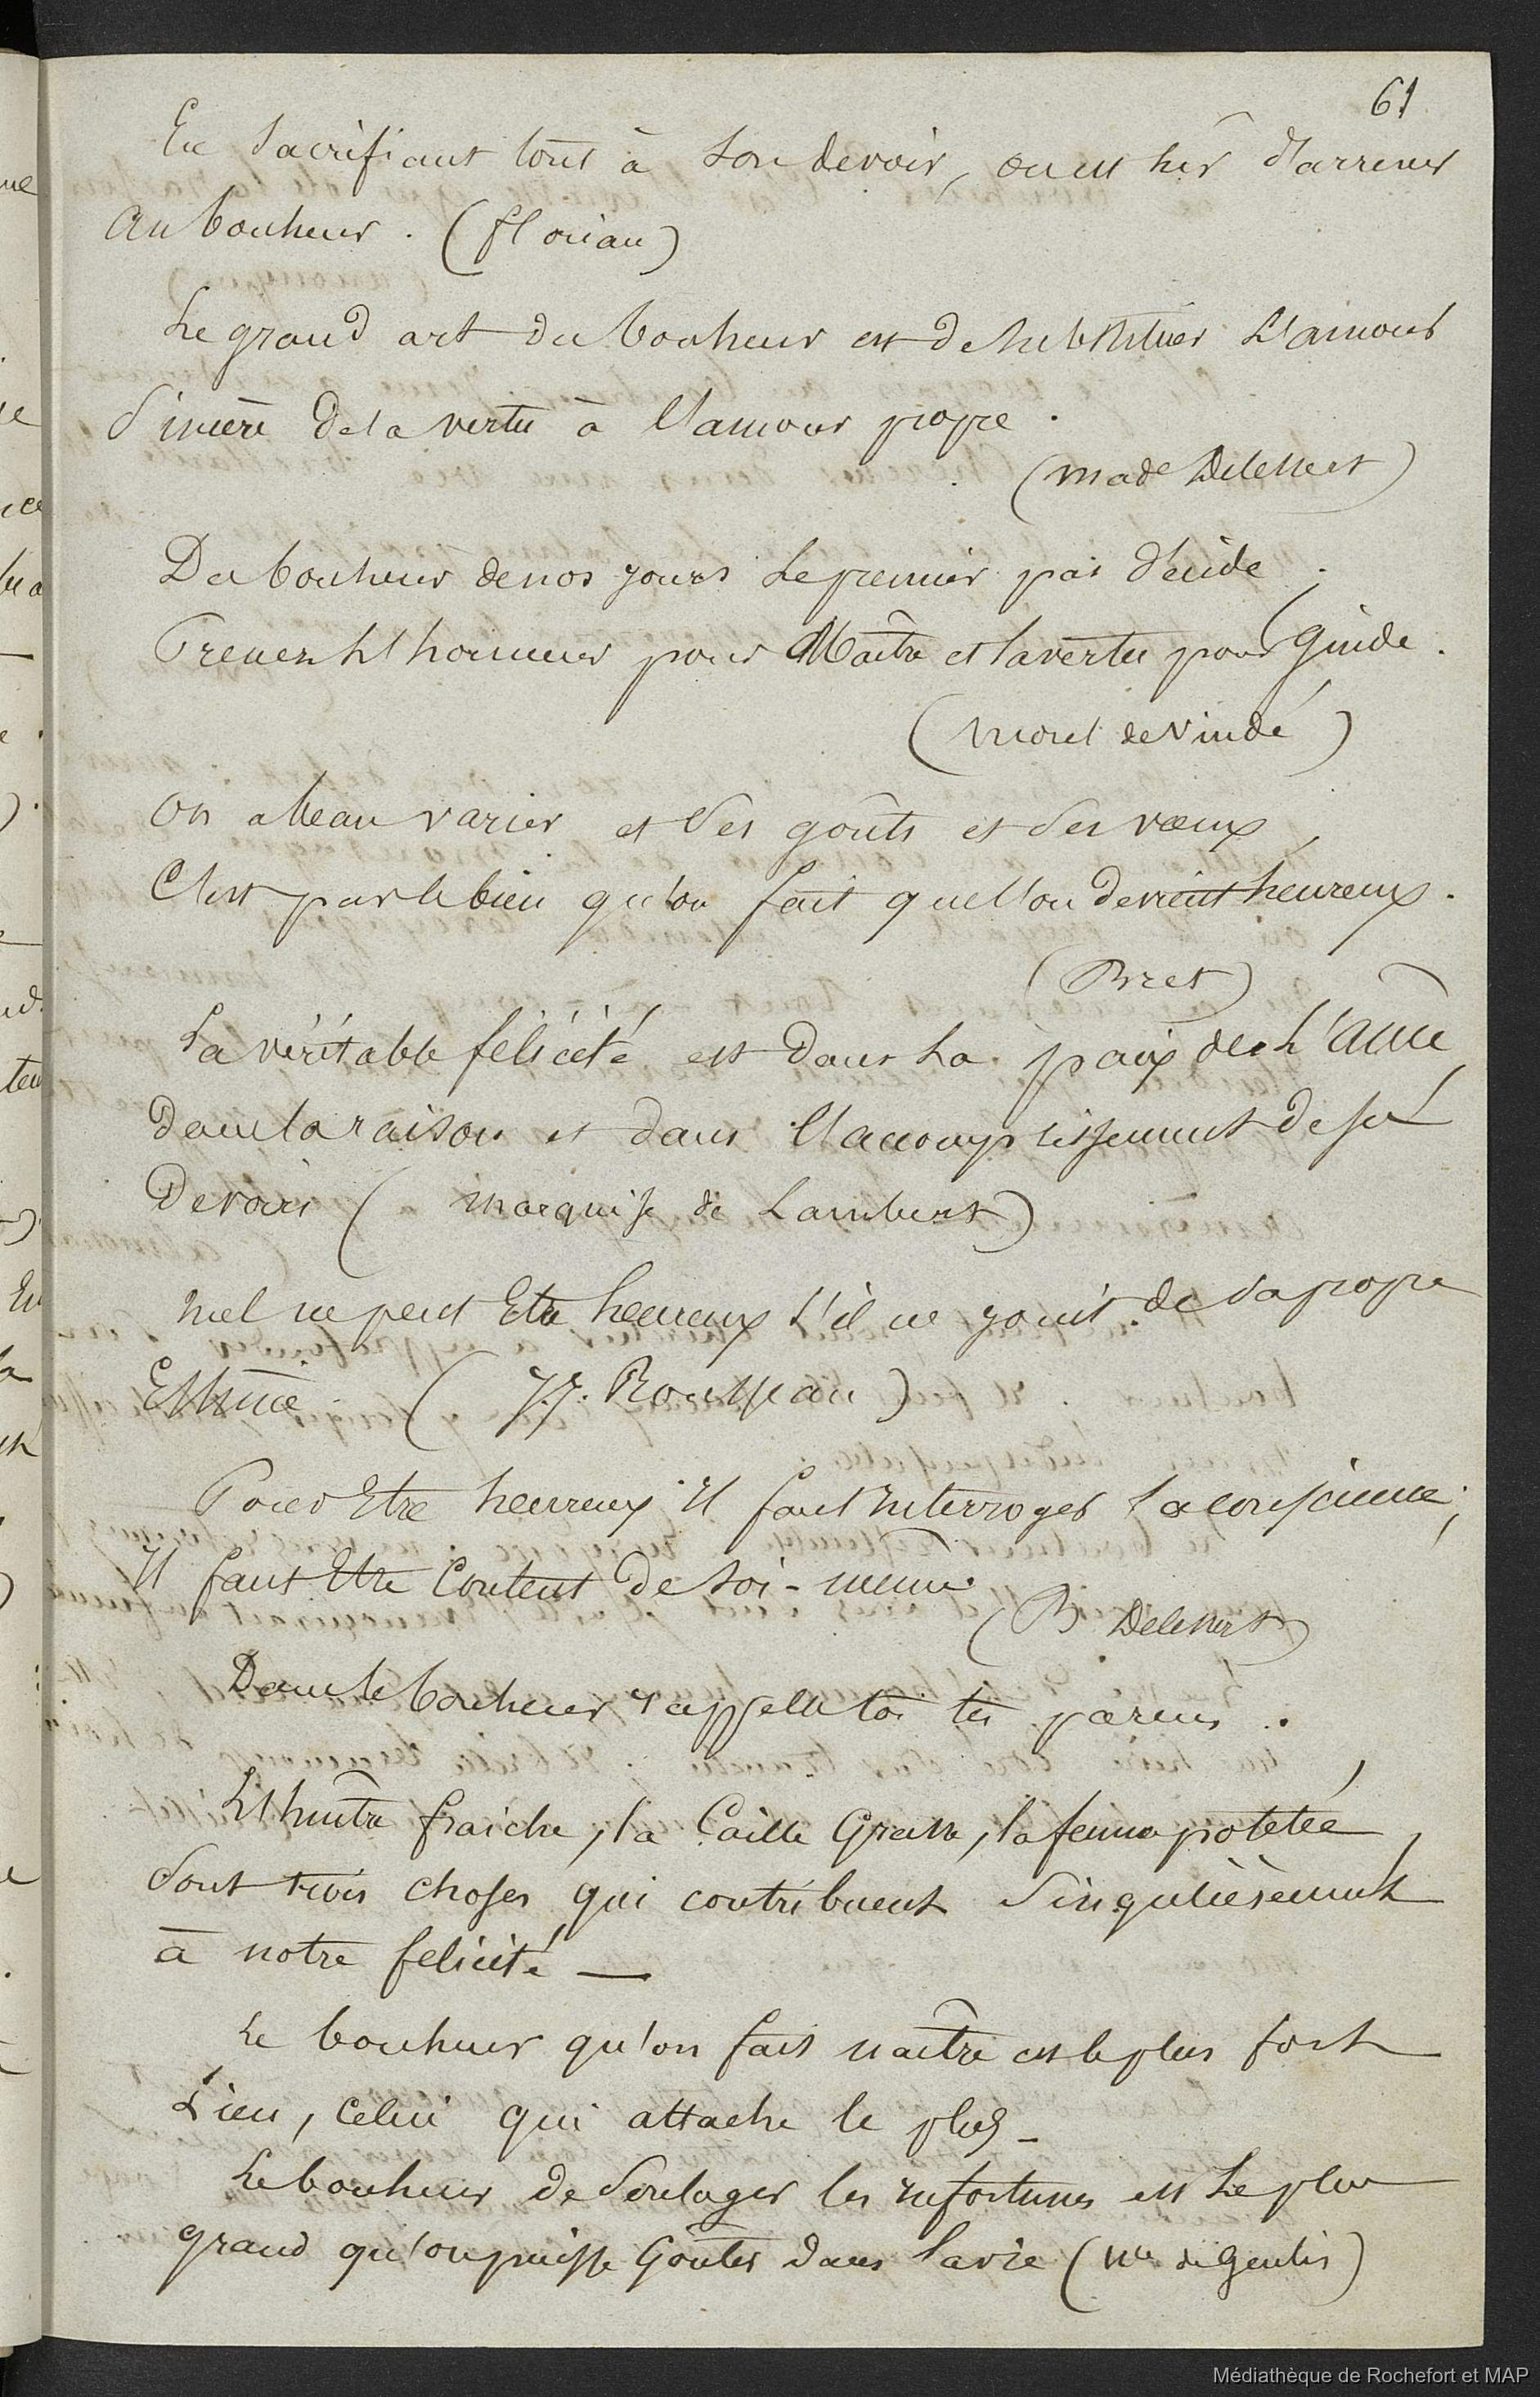 61
En sacrifiant tout à son devoir, on est sûr d'arriver
au bonheur. (florian)
Le grand art du bonheur est de substituer L'amour
sincère de la vertu à l'amour propre.
(made Delessert)
Du bonheur de nos jours Le premier pas décide;
Prenez L'honneur pour Maître et la vertu pour Guide.
(morel de vindé)
on a beau varier et ses goûts et ses vœux,
C'est par le bien qu'on fait que l'on devient heureux.
(Bret)
La véritable félicité est dans La paix de L'âme,
dans la raison et dans l'accomplissement de ses
devoirs (marquise de Lambert)
nul ne peut Etre heureux s'il ne jouit de sa propre
Estime. (J.J. Rousseau)
Pour Etre heureux il faut interroger la conscience;
Il faut Etre Content de soi-même
(B Delessert)
Dans le bonheur rappelle toi tes parens.
L'huître fraiche, la Caille Grasse, la femme potelée,
sont trois choses qui contribuent singulièrement
à notre félicité —
Le bonheur qu'on fait naître est le plus fort
Lien, celui qui attache le plus_
Le bonheur de soulager les infortunes est Le plus
grand qu'on puisse Goûter dans la vie (Me de Genlis)
Médiathèque de Rochefort et MAP